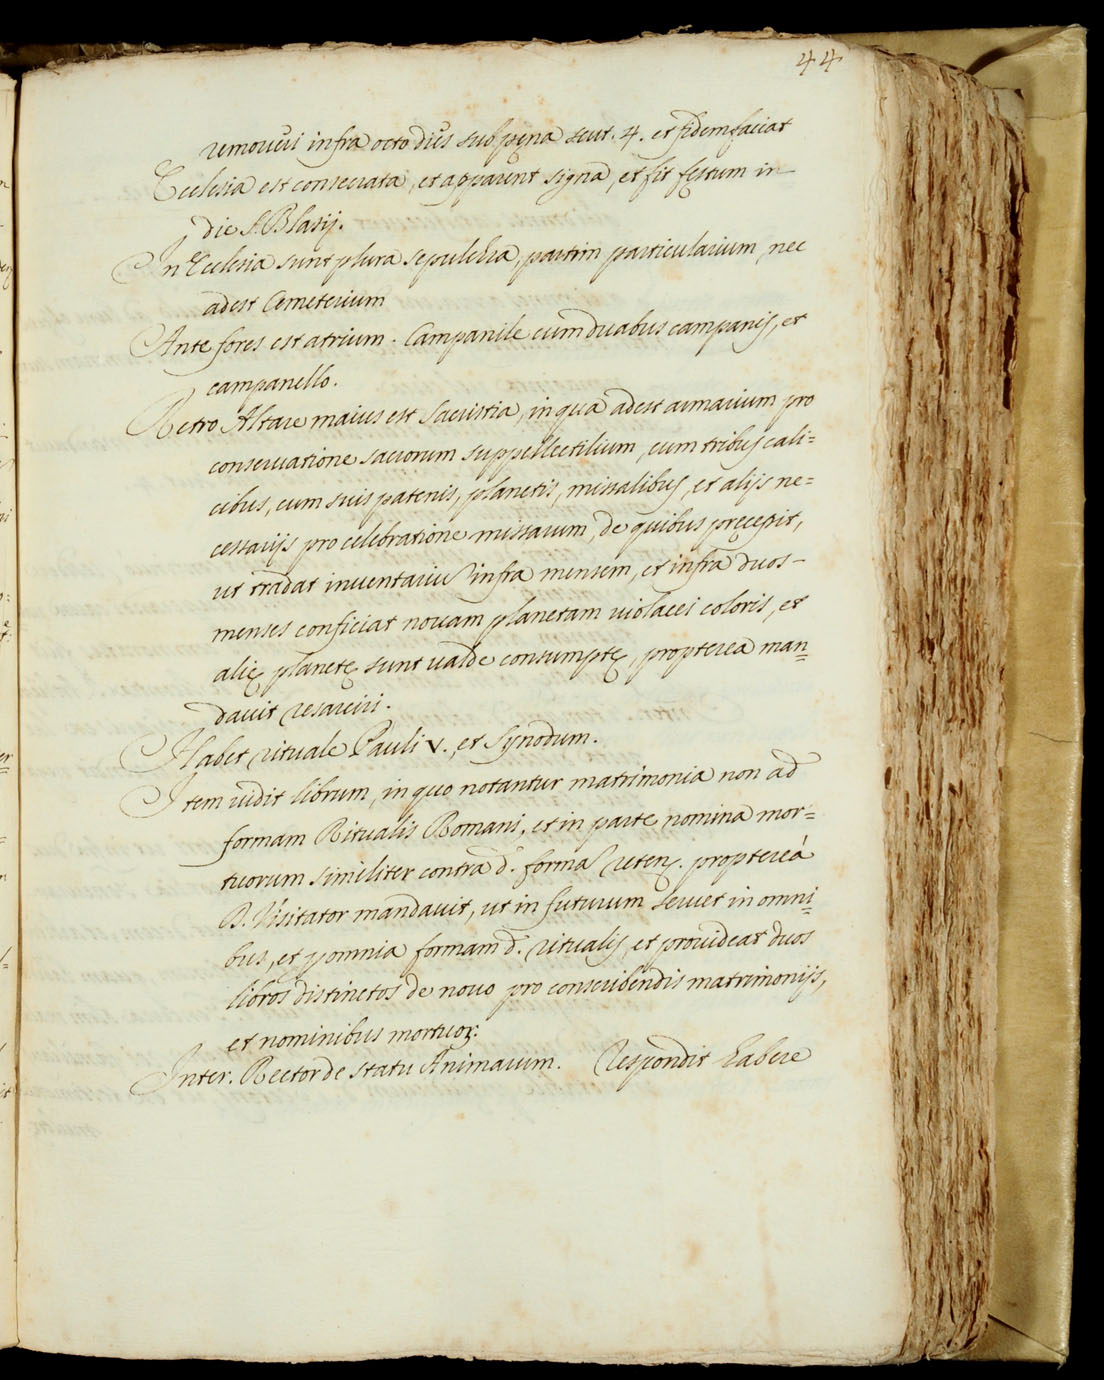 44
remoueri infra octo dies sub pęna scut. 4. et fidem faciat
Ecclesia est consecrata, et apparent signa, et fit festum in
die S. Blasij.
In Ecclesia sunt plura sepulchra, partim particularium, nec
adest Cemeterium
Ante fores est atrium. Campanile cum duabus campanis, et
campanello.
Retro Altare maius est Sacristia, in qua adest armarium pro
conseruatione sacrorum suppellectilium, cum tribus cali=
cibus, cum suis patenis, planetis, missalibus, et alijs ne=
cessarijs pro celebratione missarum, de quibus pręcepit,
ut tradat inuentariū infra mensem, et infra duos
menses conficiat nouam planetam uiolacei coloris, et
alię planetę sunt ualde consumptę, propterea man=
dauit resarciri.
Habet rituale Pauli V. et Synodum.
Item uidit librum, in quo notantur matrimonia non ad
formam Ritualis Romani, et in parte nomina mor=
tuorum similiter contra d. formā reten. propterea
R. Visitator mandauit, ut in futurum seruet in omni=
bus, et p omnia formam d. ritualis, et prouideat duos
libros distinctos de nouo pro conscribendis matrimonijs,
et nominibus mortuor:
Inter. Rector de statu Animarum. Respondit habere